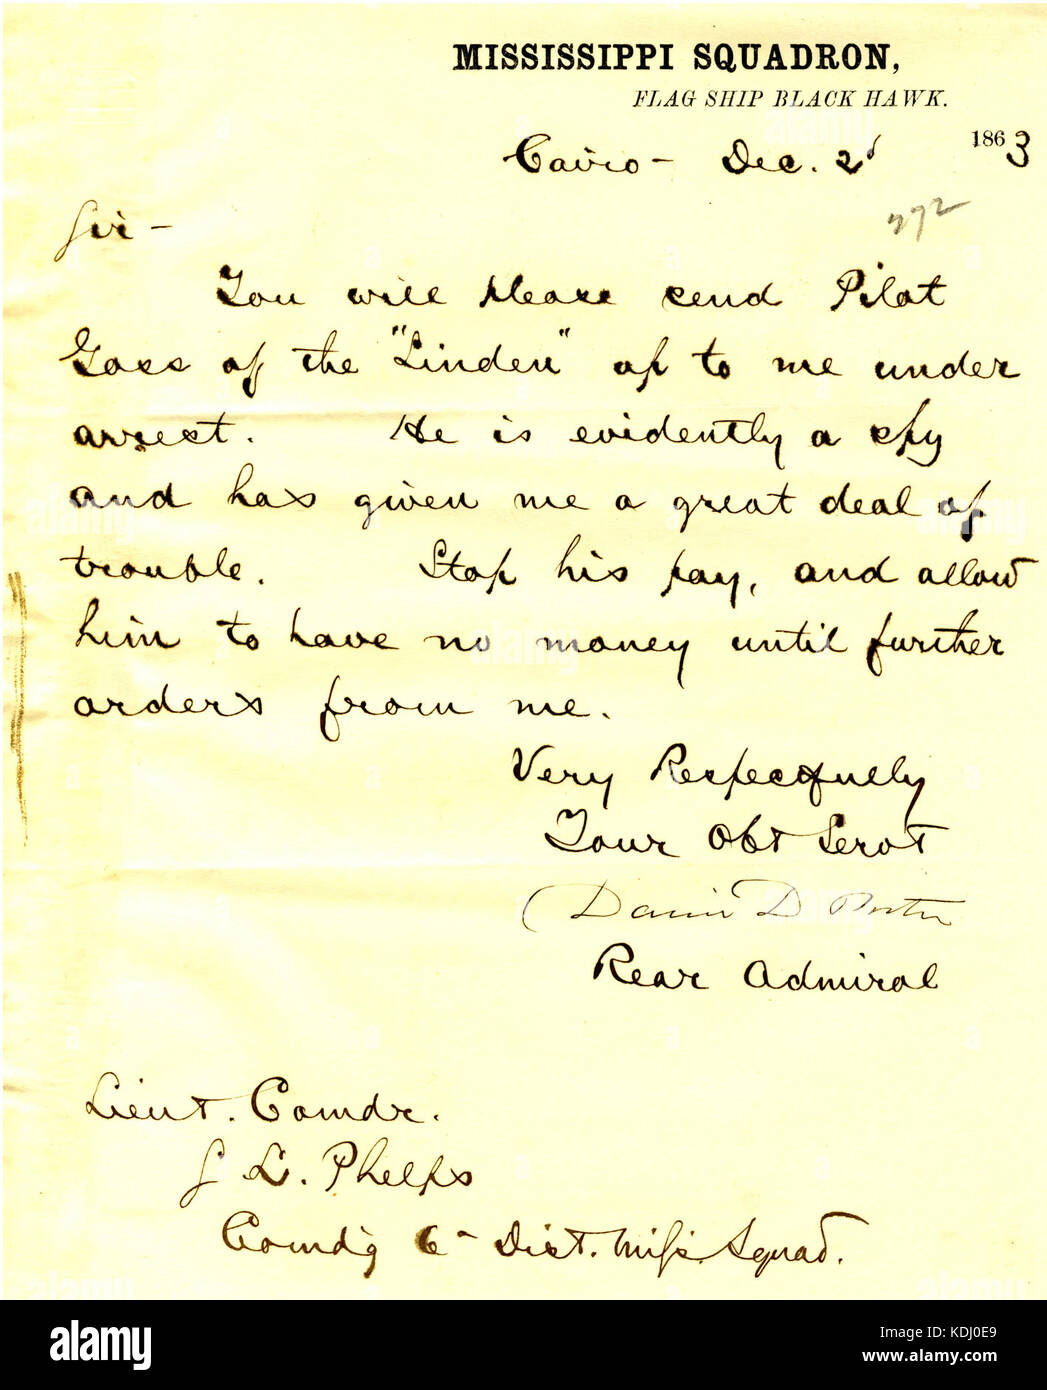 MISSISSIPPI SQUADRON,
FLAG SHIP BLACK HAWK.
Cairo - Dec. 2d 1863
272
Sir -
You will please send Pilot
Goss of the "Linden" up to me under
arrest. He is evidently a spy
and has given me a great deal of
trouble. Stop his pay, and allow
him to have no money until further
orders from me.
Very Respectfully
Your Obt Servt
(David D Porter
Rear Admiral
Lieut. Comdr.
S L. Phelps
Comdg 6 - Dist. Miss. Squad.
alamy
Image ID: KDJ0E9
www.alamy.com